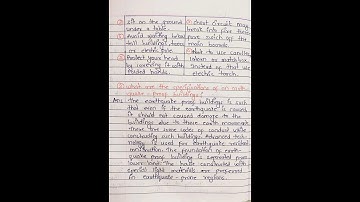 ③ sit on the ground
under a table.
④ Avoid going behind
tall buildings, trees
or electric pole.
⑤ Protect your head
by covering it with
folded hands.
② short circuit may
break into fire there
fore switch off the
main boards.
Not to use candles
lantern or matchbox
Instead of that use
electric torch.
② what are the specifications of an earth
quake - proof buildings?
Ans: The earthquake proof buildings is such
that even if the earthquake is caused
it should not caused damage to the
buildings due to these earth movement.
There are some codes of conduct while
constructing such buildings. Advanced tech
nology is used for earthquake resistant
construction. The foundation of earth-
quake proof building is separated from
lower land. The base constructed with
special light materials are preferred
in earthquake-prone regions.